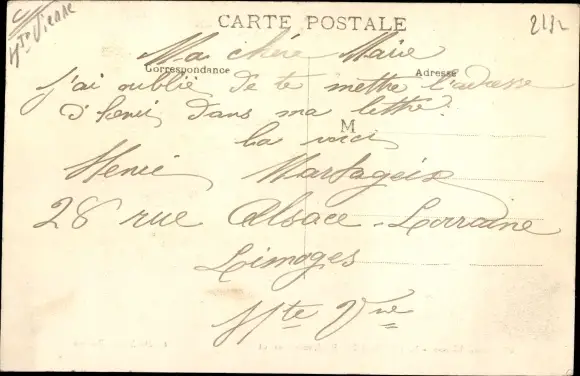 Hte Vienne
2132
CARTE POSTALE
Ma chère Marie
Correspondance
Adresse
j'ai oublié de te mettre l'adresse
d'Henri dans ma lettre.
M
la voici
Henri
28 rue Alsace-Lorraine
Limoges
Hte Vne